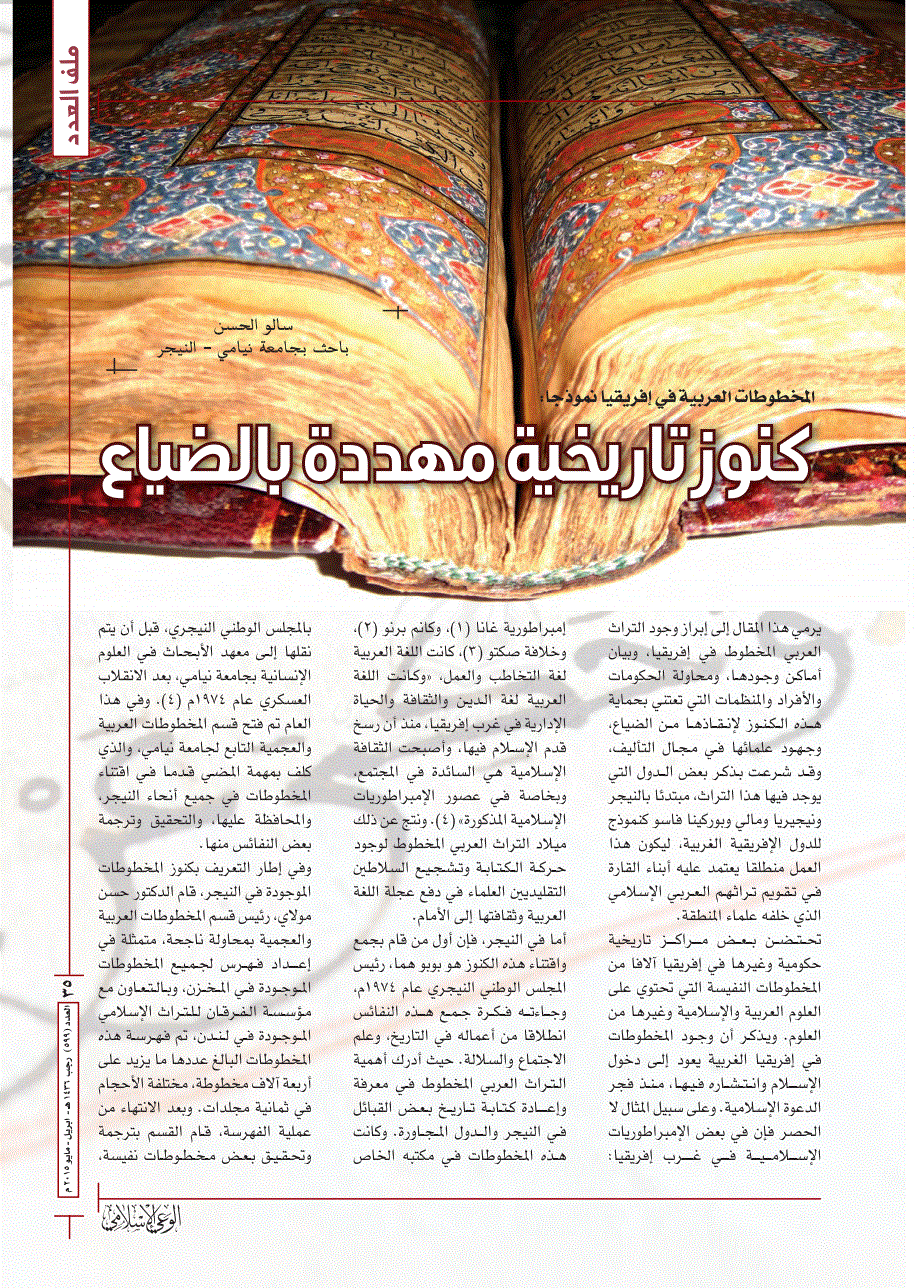 ملف العدد
سالو الحسن
باحث بجامعة نيامي - النيجر
المخطوطات العربية في إفريقيا نموذجا:
كنوز تاريخية مهددة بالضياع
يرمي هذا المقال إلى إبراز وجود التراث
العربي المخطوط في إفريقيا، وبيان
أماكن وجودهـا، ومحاولة الحكومات
والأفراد والمنظمات التي تعتني بحماية
هـذه الكنـوز لإنقـاذهـا مـن الضياع،
وجهـود علمائها فـي مجـال التأليف،
وقـد شـرعت بـذكر بعض الـدول التي
يوجد فيها هذا التراث، مبتدئا بالنيجر
ونيجيريا ومالي وبوركينا فاسو كنموذج
للدول الإفريقية الغربية، ليكون هذا
العمل منطلقا يعتمد عليه أبناء القارة
في تقـويم تراثهـم العربـي الإسلامي
الذي خلفه علماء المنطقة.
تحـتـضـن بـعـض مـراكـز تاريخية
حكومية وغيرها في إفريقيا آلافا من
المخطوطات النفيسة التي تحتوي على
العلوم العربية والإسلامية وغيرها من
العلوم. ويـذكر أن وجـود المخطوطات
في إفريقيا الغربية يعود إلى دخول
الإسـلام وانـتـشـاره فيهـا، منـذ فجر
الدعوة الإسلامية. وعلى سبيل المثال لا
الحصر فإن في بعض الإمبراطوريات
الإسـلامـيـة فـي غـرب إفريقيا:
إمبراطورية غانا (١)، وكانم برنو (٢)،
وخلافة صكتو (٣)، كانت اللغة العربية
لغة التخاطب والعمل، «وكـانت اللغة
العربية لغة الـدين والثقافة والحياة
الإدارية في غرب إفريقيا، منذ أن رسخ
قدم الإسـلام فيها، وأصبحت الثقافة
الإسلامية هي السائدة في المجتمع،
وبخاصة في عصور الإمبراطوريات
الإسلامية المذكورة» (٤). ونتج عن ذلك
ميلاد التراث العربي المخطوط لوجود
حـركـة الـكـتـابـة وتشـجيـع السـلاطين
التقليديين العلماء في دفع عجلة اللغة
العربية وثقافتها إلى الأمام.
أما في النيجر، فإن أول من قام بجمع
واقتناء هذه الكنوز هو بوبو هما، رئيس
المجلس الوطني النيجري عام ١٩٧٤م،
وجـاءتـه فـكـرة جمـع هـذه النفائس
انطلاقا من أعماله في التاريخ، وعلم
الاجتماع والسلالة. حيث أدرك أهمية
التـراث العربي المخطوط في معرفة
وإعـادة كتـابـة تـاريـخ بـعـض القبائل
في النيجر والـدول المجـاورة. وكانت
هـذه المخطوطات فـي مكتبه الخاص
بالمجلس الوطني النيجري، قبل أن يتم
نقلها إلـى معهد الأبـحـاث فـي العلوم
الإنسانية بجامعة نيامي، بعد الانقلاب
العسكري عام ١٩٧٤م (٤). وفي هـذا
العام تم فتح قسم المخطوطات العربية
والعجمية التابع لجامعة نيامي، والذي
كلف بمهمة المضـي قدمـا فـي اقتناء
المخطوطات في جميع أنحاء النيجر،
والمحافظة عليها، والتحقيق وترجمة
بعض النفائس منها.
وفي إطار التعريف بكنوز المخطوطات
الموجودة في النيجر، قام الدكتور حسن
مولاي، رئيس قسم المخطوطات العربية
والعجمية بمحاولة ناجحة، متمثلة في
إعـداد فـهـرس لجـمـيـع المخطوطات
المـوجـودة فـي المخـزن، وبـالـتـعـاون مع
مؤسسة الفـرقـان للـتـراث الإسلامي
الموجـودة في لنـدن، تم فهـرسـة هذه
المخطوطات البالغ عددها ما يزيد على
أربعة آلاف مخطوطة، مختلفة الأحجام
في ثمانية مجلدات. وبعد الانتهاء من
عملية الفهرسة، قـام القسم بترجمة
وتحـقـيـق بعـض مخـطـوطـات نفيسة،
٣٥
العدد (٥٩٩) رجب ١٤٣٦ هـ - ابريل - مايو ٢٠١٥ م
الوعي الإسلامي